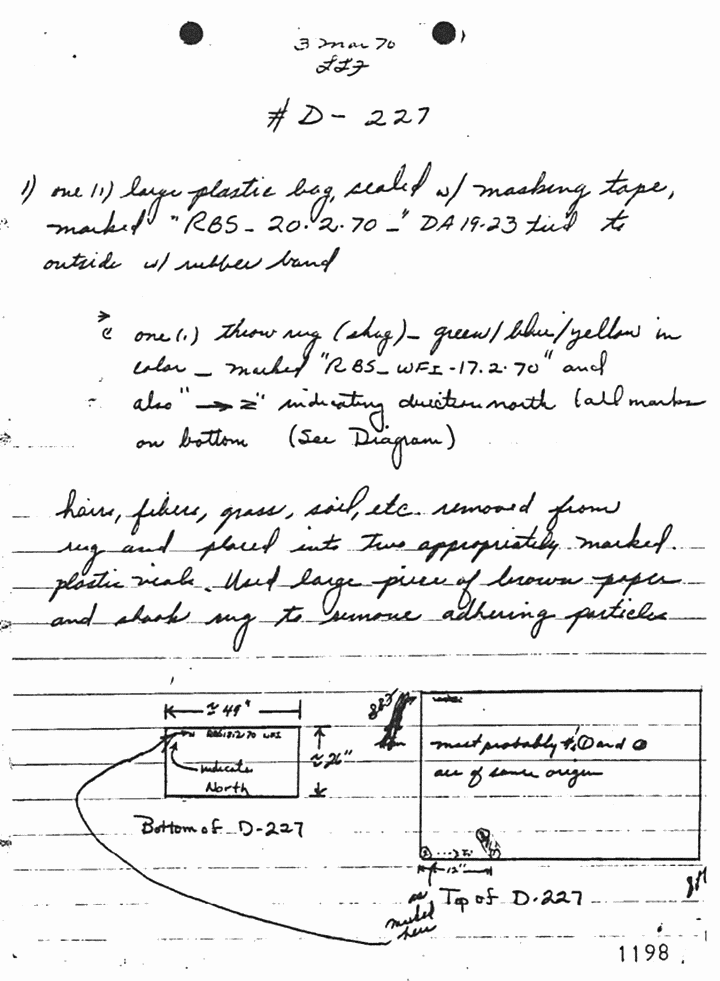 3 Mar 70
# D - 227
1) one (1) large plastic bag, sealed w/ masking tape,
marked "RBS - 20.2.70 -" DA19-23 tied to
outside w/ rubber band
c one (1) throw rug (shag) - green/blue/yellow in
color - marked "RBS - WFI - 17.2.70" and
also "→ z" indicating direction north (all marks
on bottom (See Diagram)
hairs, fibers, grass, soil, etc. removed from
rug and placed into two appropriately marked
plastic vials. Used large piece of brown paper
and shook rug to remove adhering particles
≈ 49"
≈ 26"
indicates
North
Bottom of D-227
most probably #'s ① and ②
are of same origin
12"
Top of D-227
as
marked
here
1198